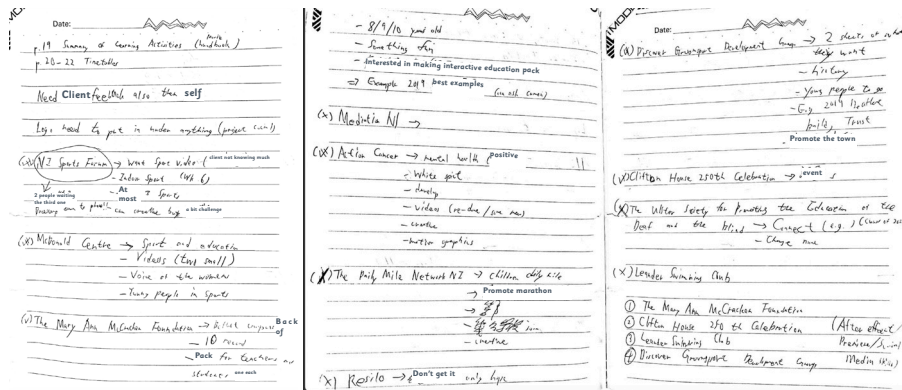 Date:
p.19 Summary of Learning Activities (handbook)
p.20-22 Timetables
Need Client feedback also then self
Logo need to put in under anything (project
NI Sports Forum → Want Sport video (client not knowing much
- Indoor Sport (Wk 6)
At most 7 Sports
2 people waiting the third one
can a bit challenge
McDonald Centre → Sport and education
- Videos (two small)
- Voice of the women
- Young people in sports
(v) The Mary Ann McCracken Foundation → Back of
- 10 record
- Pack for teachers
students one each
- 8/9/10 years old
- Something fun
- Interested in making interactive education pack
⇒ Example 2019 best examples
(x) Mediation NI →
(x) Action Cancer → mental health (positive
- White
- develop
- videos
- creative
- motion graphics
(x) The Daily Mile Network NI → children daily mile
→ Promote marathon
- creative
(x) Resilo → Don't get it only
Date:
Discover Groomsport Development Group → 2 sheets of
they want
- history
- Young people to
- E.g. 2019 Brothers
Trust
Promote the town
(v) Clifton House 250th Celebration → event
(x) The Ulster Society for Promoting the Education of the
Deaf and the blind → Connect (e.g.)
- Change name
(x) Leander Swimming Club
① The Mary Ann McCracken Foundation
② Clifton House 250th Celebration (After effect/
③ Leander Swimming Club
④ Discover Groomsport Development Group